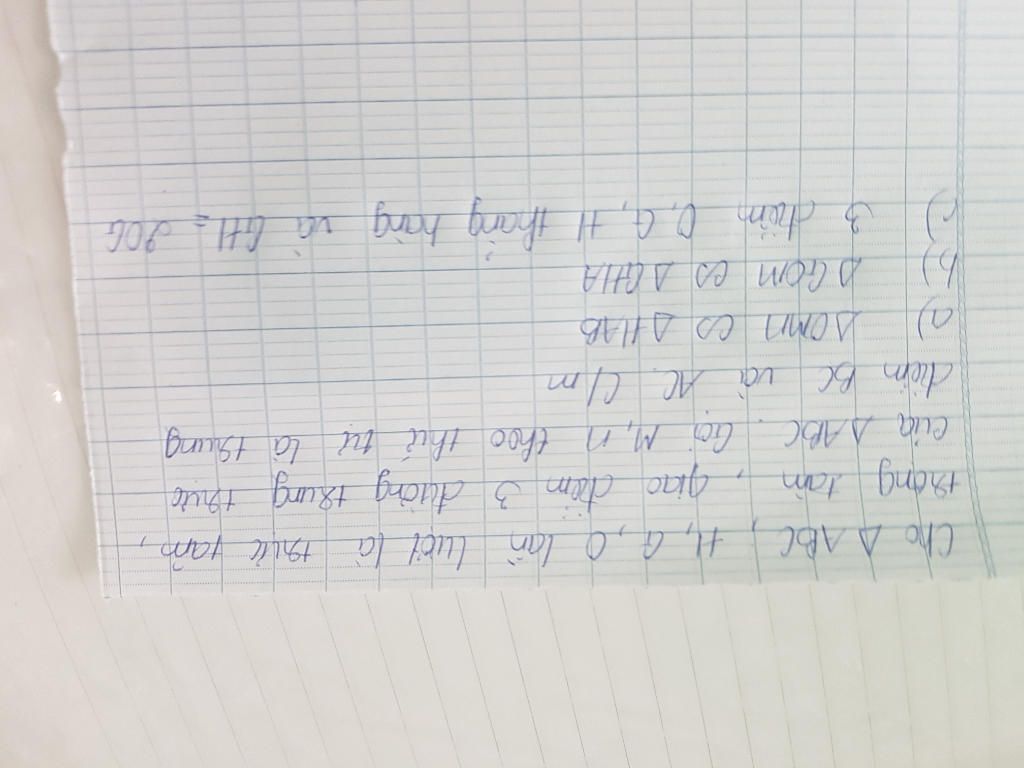 Cho Δ ABC, H, G, O lần lượt là trực tâm,
trọng tâm, giao điểm 3 đường trung trực
của Δ ABC. Gọi M, N theo thứ tự là trung
điểm BC và AC. C/m
a) ΔOMN ∽ ΔHAB
b) ΔGOM ∽ ΔGHA
c) 3 điểm O, G, H thẳng hàng và GH = 2OG